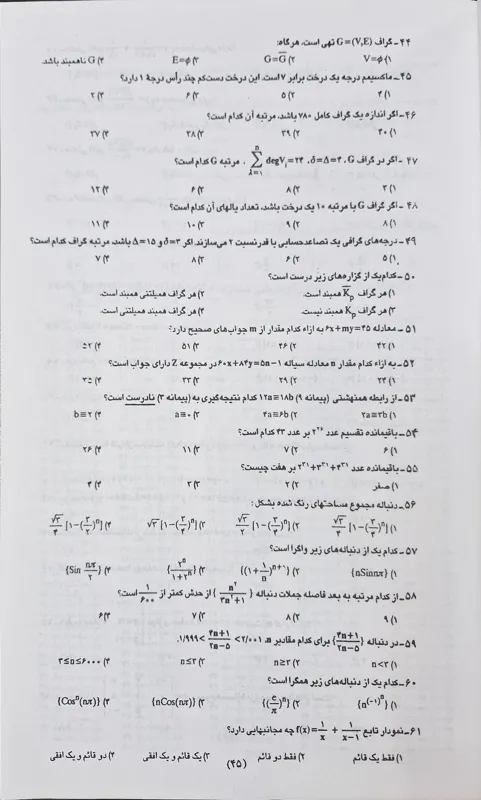 ۴۴ـ گراف G=(V,E) تهی است، هرگاه:
۱) V=ϕ ۲) G=G̅ ۳) E=ϕ ۴) G ناهمبند باشد.
۴۵ـ ماکسیمم درجه یک درخت برابر ۷ است. این درخت دست‌کم چند رأس درجهٔ ۱ دارد؟
۱) ۴ ۲) ۵ ۳) ۶ ۴) ۲
۴۶ـ اگر اندازه یک گراف کامل ۷۸۰ باشد، مرتبه آن کدام است؟
۱) ۴۰ ۲) ۳۹ ۳) ۳۸ ۴) ۳۷
۴۷ ـ اگر در گراف G، δ=Δ=۴، ∑ degVᵢ=۲۴ ، مرتبه G کدام است؟
۱) ۳ ۲) ۸ ۳) ۶ ۴) ۱۲
۴۸ـ اگر گراف G با مرتبه ۱۰ یک درخت باشد، تعداد یالهای آن کدام است؟
۱) ۸ ۲) ۹ ۳) ۱۰ ۴) ۱۱
۴۹ـ درجه‌های گرافی یک تصاعدحسابی با قدرنسبت ۲ می‌سازند. اگر δ=۳ و Δ=۱۵ باشد، مرتبه گراف کدام است؟
۱) ۵ ۲) ۶ ۳) ۸ ۴) ۷
۵۰ـ کدام‌یک از گزاره‌های زیر درست است؟
۱) هر گراف K̅p همبند است. ۲) هر گراف همیلتنی همبند است.
۳) هر گراف Kp همبند نیست. ۴) هر گراف همبند همیلتنی است.
۵۱ـ معادله ۶x+my=۴۵ به ازاء کدام مقدار از m جواب‌های صحیح دارد؟
۱) ۴۲ ۲) ۳۶ ۳) ۵۱ ۴) ۵۲
۵۲ـ به ازاء کدام مقدار n معادله سیاله ۶۰x+۸۴y=۵n-۱ در مجموعه Z دارای جواب است؟
۱) ۲۴ ۲) ۲۹ ۳) ۳۳ ۴) ۳۵
۵۳ـ از رابطه همنهشتی (پیمانه ۹) ۱۲a≡۱۸b کدام نتیجه‌گیری به (پیمانه ۳) نادرست است؟
۱) ۲a≡۳b ۲) ۴a≡۶b ۳) a≡۰ ۴) b≡۲
۵۴ـ باقیمانده تقسیم عدد ۲²⁵ بر عدد ۴۳ کدام است؟
۱) ۶ ۲) ۷ ۳) ۱۱ ۴) ۲۶
۵۵ـ باقیمانده عدد ۲³¹+۳³¹+۴³¹ بر هفت چیست؟
۱) صفر ۲) ۲ ۳) ۳ ۴) ۴
۵۶ـ دنباله مجموع مساحتهای رنگ شده بشکل :
۱) √۳/۴ [۱-(۳/۴)ⁿ] ۲) √۳/۲ [۱-(۳/۴)ⁿ] ۳) √۳ [۱-(۳/۴)ⁿ] ۴) √۳/۴ [۱-(۲/۳)ⁿ]
۵۷ـ کدام یک از دنباله‌های زیر واگرا است؟
۱) {nSinnπ} ۲) {(۱+۱/n)ⁿ⁺¹} ۳) {۲ⁿ/(۱+۲ⁿ)} ۴) {Sin nπ/۲}
۵۸ـ از کدام مرتبه به بعد فاصله جملات دنباله {n²/(۳n²+۱)} از حدش کمتر از ۱/۶۰۰ است؟
۱) ۹ ۲) ۸ ۳) ۷ ۴) ۶
۵۹ـ در دنباله {(۴n+۱)/(۲n-۵)} برای کدام مقادیر n، ۱/۹۹۹< (۴n+۱)/(۲n-۵) <۲/۰۰۱.
۱) n<۳ ۲) n≥۳ ۳) n≤۳ ۴) ۳≤n≤۶۰۰۰
۶۰ـ کدام یک از دنباله‌های زیر همگرا است؟
۱) {n^(-۱)ⁿ} ۲) {(e/π)ⁿ} ۳) {nCos(nπ)} ۴) {Cosⁿ(nπ)}
۶۱ـ نمودار تابع f(x)=۱/x + ۱/(x-۱) چه مجانبهایی دارد؟
۱) فقط یک قائم ۲) فقط دو قائم ۳) یک قائم و یک افقی ۴) دو قائم و یک افقی
(۴۵)